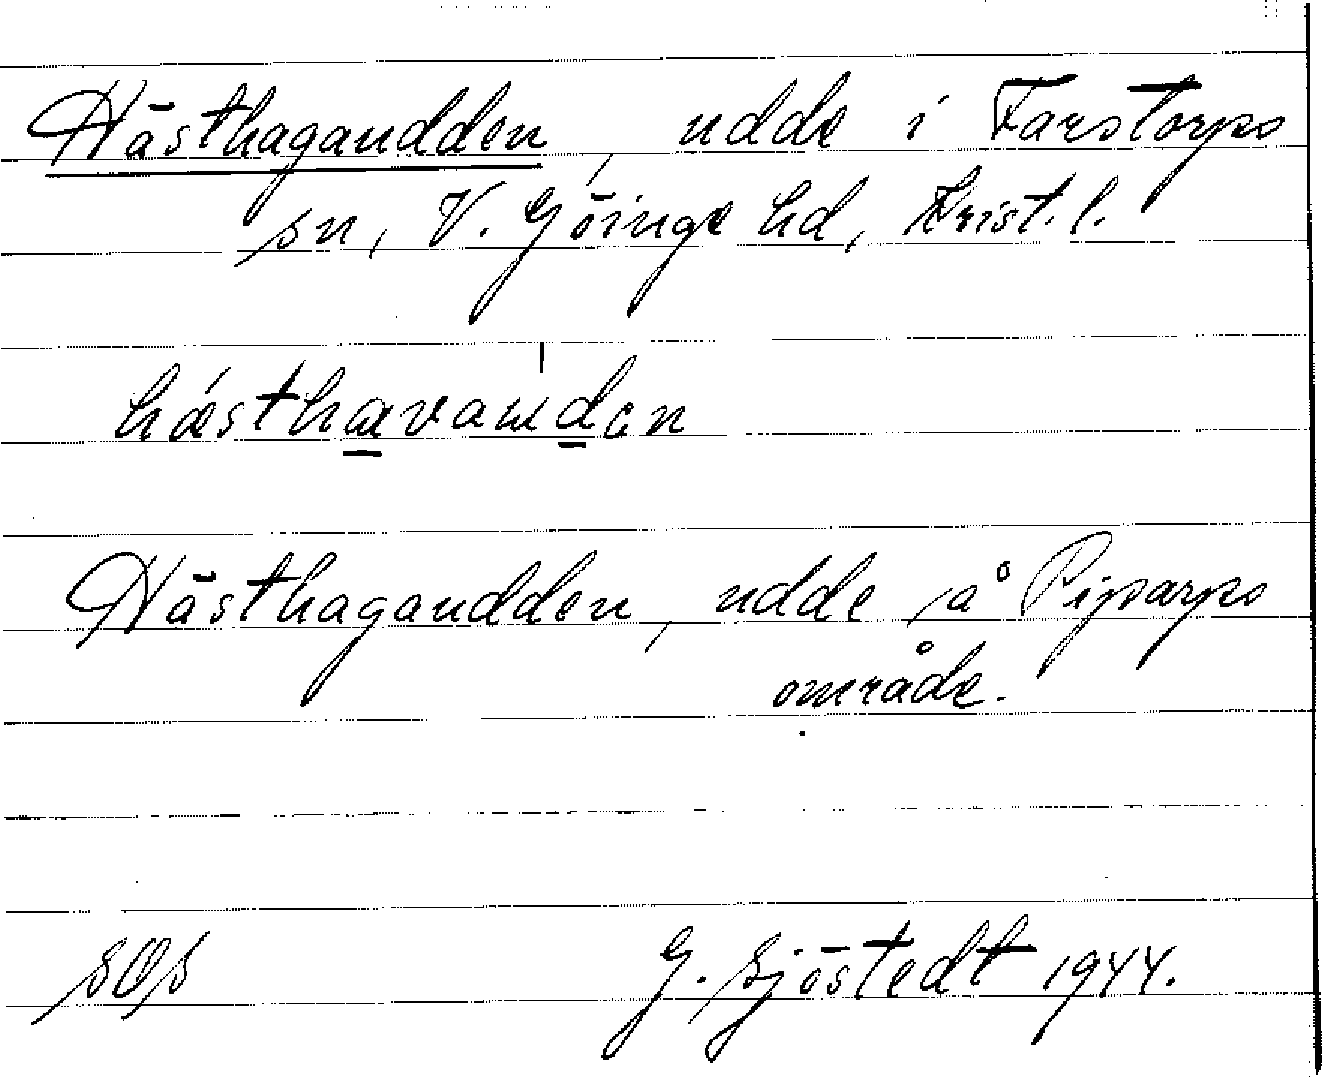 Hästhagaudden, udde i Farstorps
sn, V. Göinge hd, Krist. l.
Hästhagaudden, udde på Piparps
område.
G. Sjöstedt 1944.